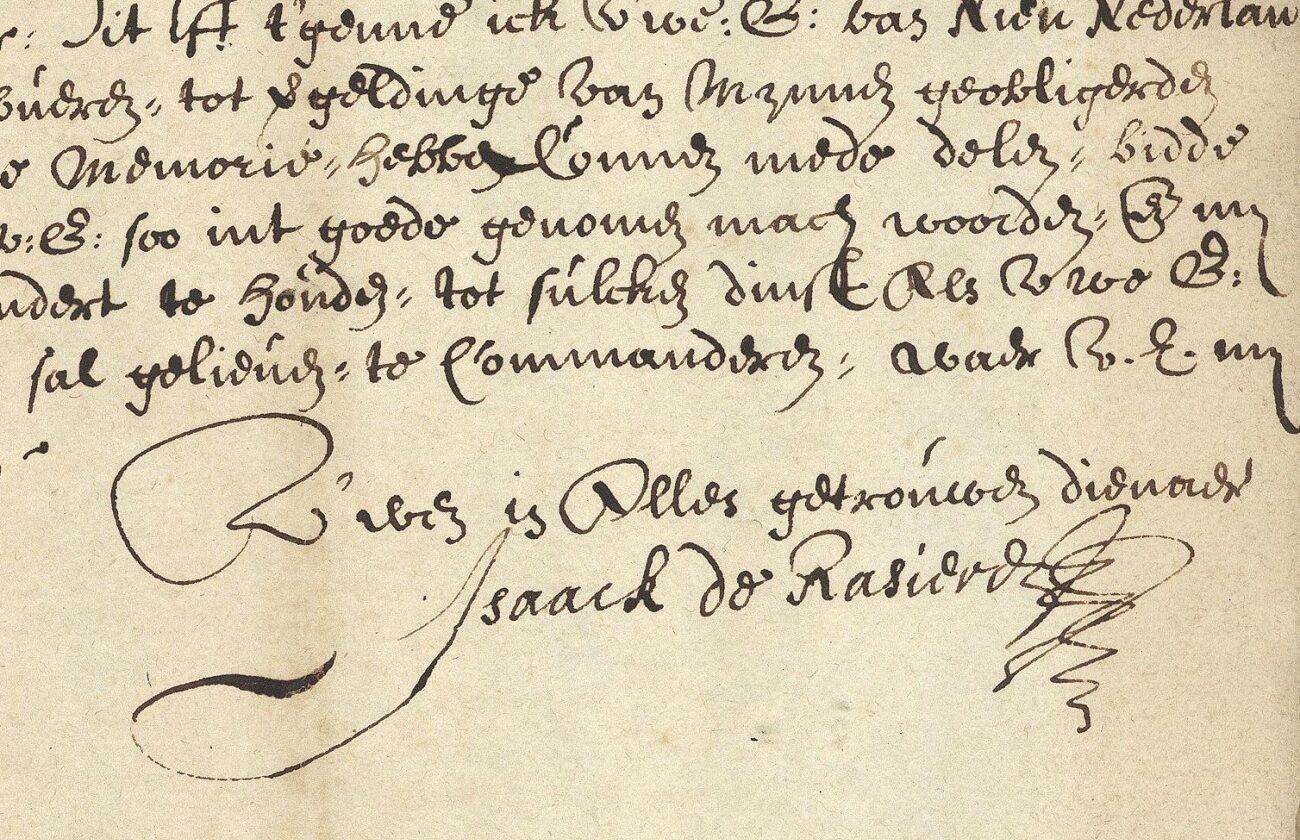 Dit Ist t'genne ick Uwe: E: van Nieu Nederlan
bueren, tot vgeldinge van Mynnen geobligerden
e Memorie, hebben Connen mede delen, bidde
w: E: soo int goede genomen mach woorden, En my
ndert te houden, tot sulcken dinst Als Uwe E:
sal gelieven, te Commanderen, waer U. E. my
Uwen in Alles getrouwen dienaer
Isaack de Rasieres